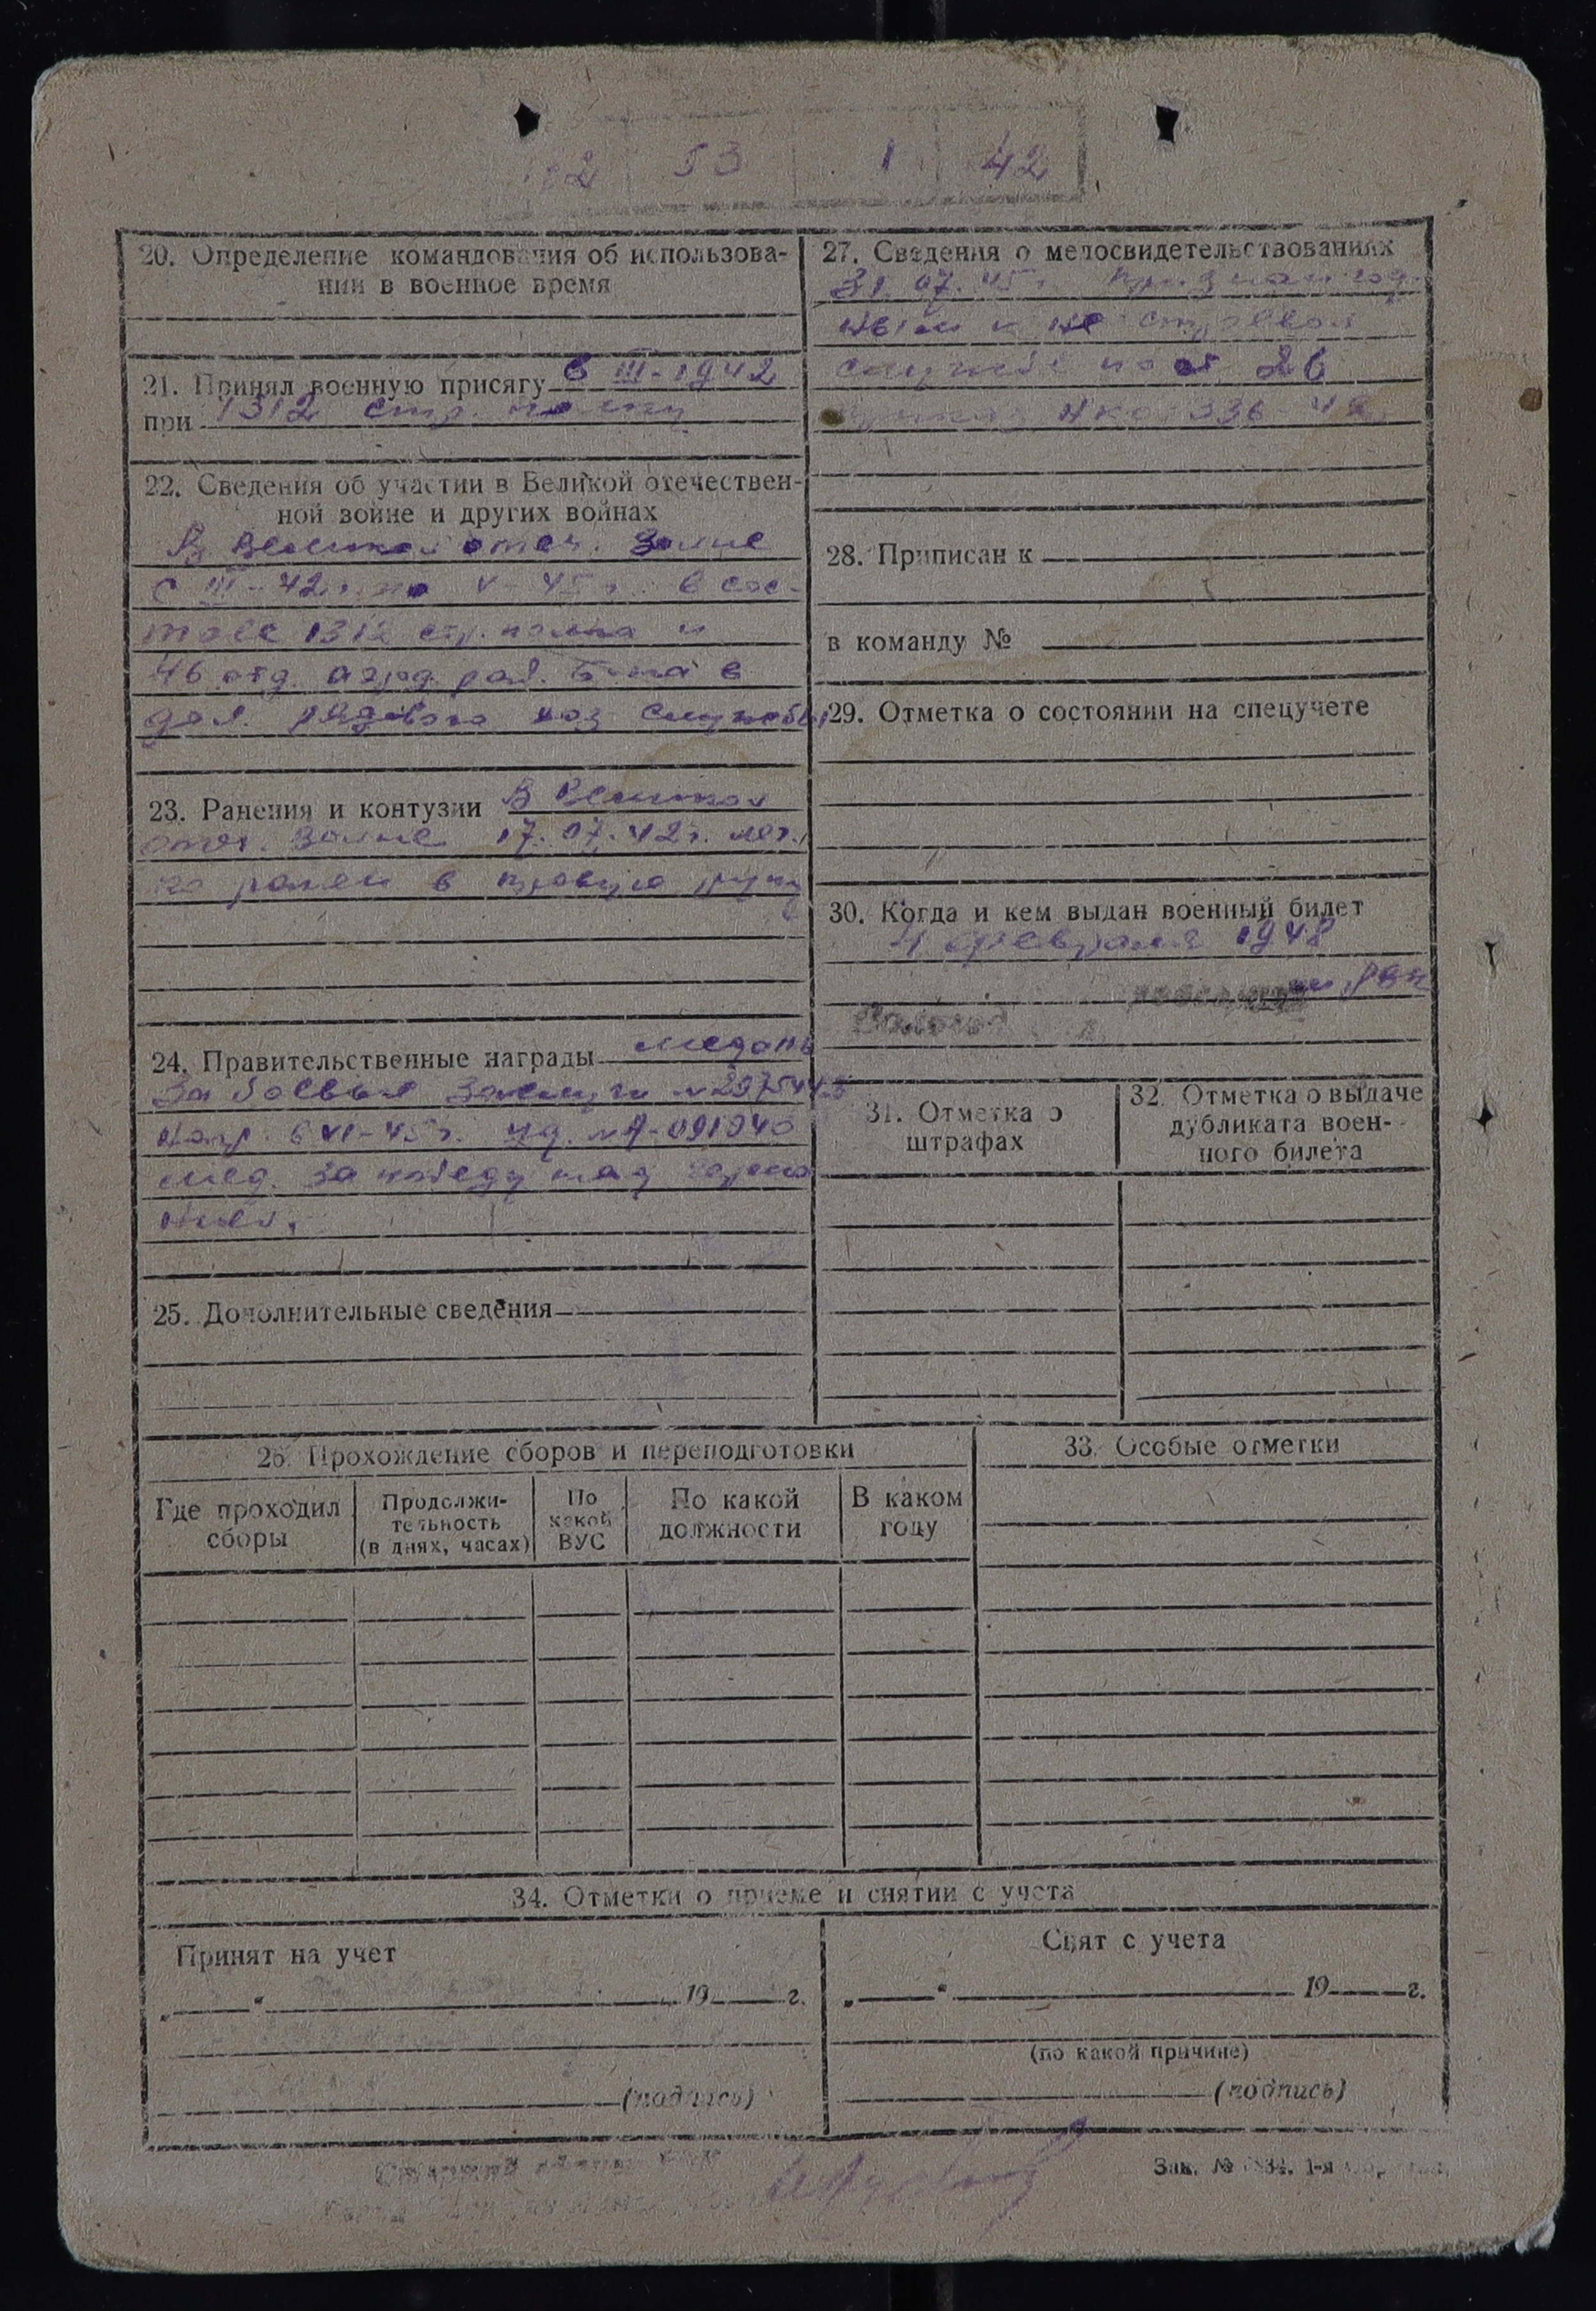 53 1 42
20. Определение командования об использова-
нии в военное время
21. Принял военную присягу 6 III-1942
при 1312 стр. полку
22. Сведения об участии в Великой отечествен-
ной войне и других войнах
В Великой отеч. войне
с III-42 г. по V-45 г. в сос-
таве 1312 стр. полка и
46 отд. аэрод. рад. б-на в
дол. рядового хоз службы
23. Ранения и контузии В Великой
отеч. войне 17.07.42 г. лег-
ко ранен в правую руку
24. Правительственные награды медаль
За боевые заслуги
6 VI-45 г. уд.
мед. За победу над Герма
нией.
25. Дополнительные сведения
26. Прохождение сборов и переподготовки
Где проходил сборы
Продолжи-
тельность
(в днях, часах)
По
какой
ВУС
По какой
должности
В каком
году
27. Сведения о медосвидетельствованиях
31.07.45 г. Признан год-
ным к не строевой
службе по ст 26
приказ НКО 336-42
28. Приписан к
в команду №
29. Отметка о состоянии на спецучете
30. Когда и кем выдан военный билет
4 февраля 1948
31. Отметка о
штрафах
32. Отметка о выдаче
дубликата воен-
ного билета
33. Особые отметки
34. Отметки о приеме и снятии с учета
Принят на учет
„ “ 19 г.
(подпись)
Снят с учета
„ “ 19 г.
(по какой причине)
(подпись)
Зак. №